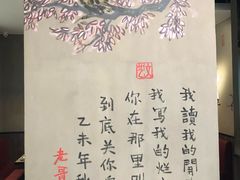 我讀我的閒
我寫我的爛
你在那里叫
到底关你
乙未年秋
老